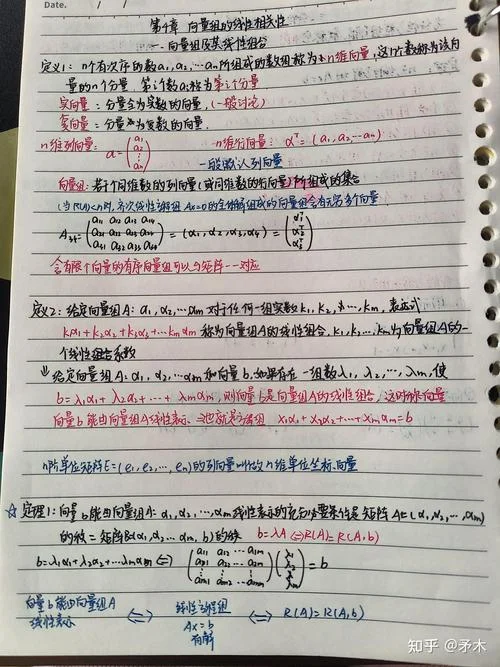 Date.
第4章 向量组的线性相关性
一. 向量组及其线性组合
定义1: n个有次序的数a₁,a₂,…an所组成的数组称为n维向量,这n个数称为该向
量的n个分量. 第i个数aᵢ称为第i个分量.
实向量: 分量全为实数的向量,(一般讨论)
复向量: 分量为复数的向量.
n维列向量: a=(a₁ a₂ ⋮ an) n维行向量: αᵀ=(a₁,a₂,…an)
一般默认列向量
向量组: 若干个同维数的列向量(或同维数的行向量)所组成的集合
(当R(A)<n时, 齐次线性方程组Ax=0的全体解组成的向量组含有无穷多个向量
A₃ₓ₄=(a₁₁ a₁₂ a₁₃ a₁₄ a₂₁ a₂₂ a₂₃ a₂₄ a₃₁ a₃₂ a₃₃ a₃₄)=(α₁,α₂,α₃,α₄)=(α₁ᵀ α₂ᵀ α₃ᵀ)
含有限个向量的有序向量组可以与矩阵一一对应
定义2: 给定向量组A: α₁,α₂,…αm 对于任何一组实数k₁,k₂,…,km, 表达式
k₁α₁+k₂α₂+k₃α₃+…kmαm 称为向量组A的线性组合, k₁,k₂,…,km为向量组A的一
个线性组合系数
给定向量组A: α₁,α₂,…αm和向量b,如果存在一组数λ₁,λ₂,…,λm,使
b=λ₁α₁+λ₂α₂+…+λmαm, 则向量b是向量组A的线性组合, 这时称向量
向量b能由向量组A线性表示. 也就是方程组 x₁α₁+x₂α₂+…+xmαm=b
n阶单位矩阵E=(e₁,e₂,…,en)的列向量叫做n维单位坐标向量
☆定理1: 向量b能由向量组A: α₁,α₂,…,αm线性表示的充分必要条件是矩阵A=(α₁,α₂,…,αm)
的秩=矩阵B(α₁,α₂…αm,b)的秩 b=λA⇔R(A)=R(A,b)
b=λ₁α₁+λ₂α₂+…λmαm⇔(a₁₁ a₁₂ …a₁m a₂₁ a₂₂ …a₂m ⋮ an₁ an₂ …anm)(λ₁ λ₂ ⋮ λm)=b
向量b能由向量组A
线性表示 ⇔ 线性方程组
Ax=b
有解 ⇔ R(A)=R(A,b)
知乎 @矛木